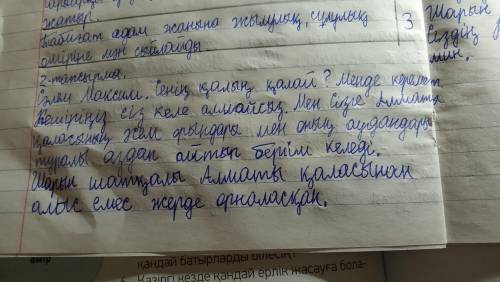 жатыр.
Табиғат адам жанына жылулық, сұлулық
өміріне мән сыйлайды
2-тапсырма.
Сәлем Максим. Сенің қалың қалай? Менде керемет
Кешіріңіз сіз келе алмайсыз. Мен Сізге Алматы
қаласының жем орындары мен оның аудандары
туралы аздап айтып бергім келеді.
Шарын шатқалы Алматы қаласынан
алыс емес жерде орналасқан.
3
Шарын
Сіздің
мин.
қандай батырларды білесің?
6. Қазіргі кезде қандай ерлік жасауға бола-